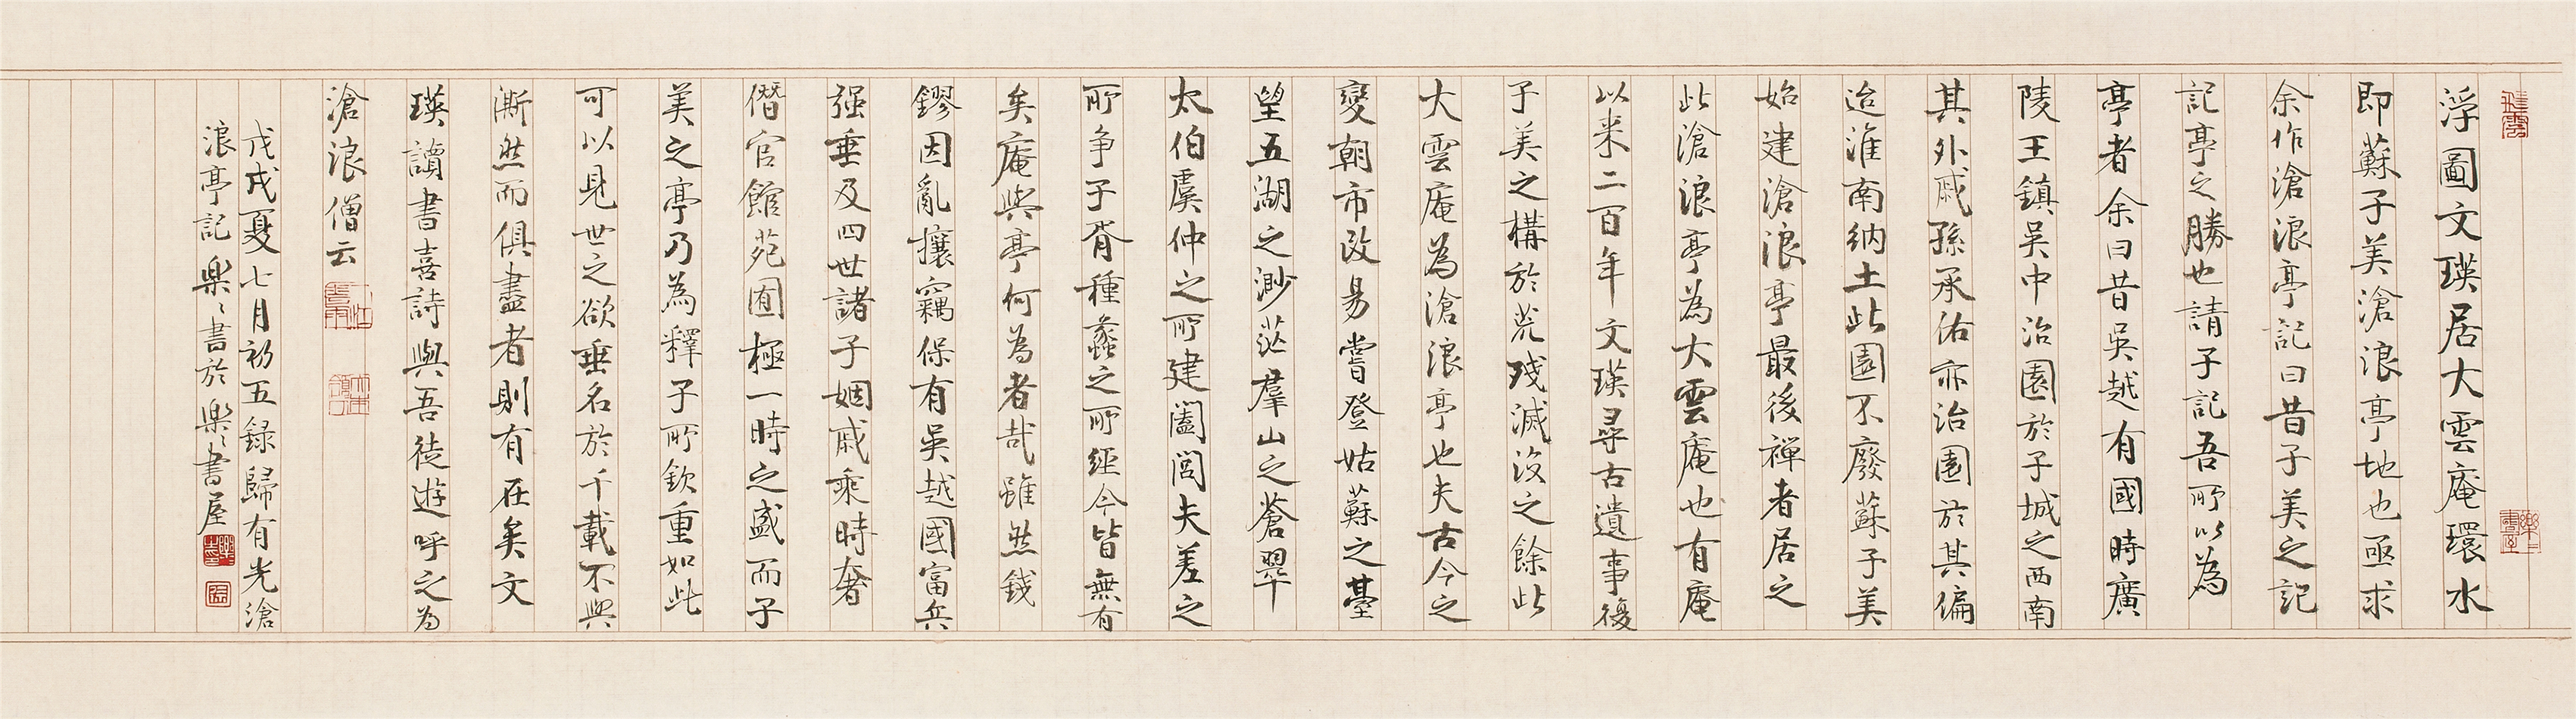 浮圖文瑛居大雲庵環水
即蘇子美滄浪亭地也亟求
余作滄浪亭記曰昔子美之記
記亭之勝也請子記吾所以為
亭者余曰昔吳越有國時廣
陵王鎮吳中治園於子城之西南
其外戚孫承佑亦治園於其偏
迨淮南納土此園不廢蘇子美
始建滄浪亭最後禪者居之
此滄浪亭為大雲庵也有庵
以來二百年文瑛尋古遺事復
子美之構於荒殘滅沒之餘此
大雲庵為滄浪亭也夫古今之
變朝市改易嘗登姑蘇之臺
望五湖之渺茫羣山之蒼翠
太伯虞仲之所建闔閭夫差之
所爭子胥種蠡之所經今皆無有
矣庵與亭何為者哉雖然錢
鏐因亂攘竊保有吳越國富兵
强垂及四世諸子姻戚乘時奢
僭宮館苑囿極一時之盛而子
美之亭乃為釋子所欽重如此
可以見世之欲垂名於千載不與
澌然而俱盡者則有在矣文
瑛讀書喜詩與吾徒遊呼之為
滄浪僧云
戊戌夏七月初五録歸有光滄
浪亭記樂樂書於樂樂書屋